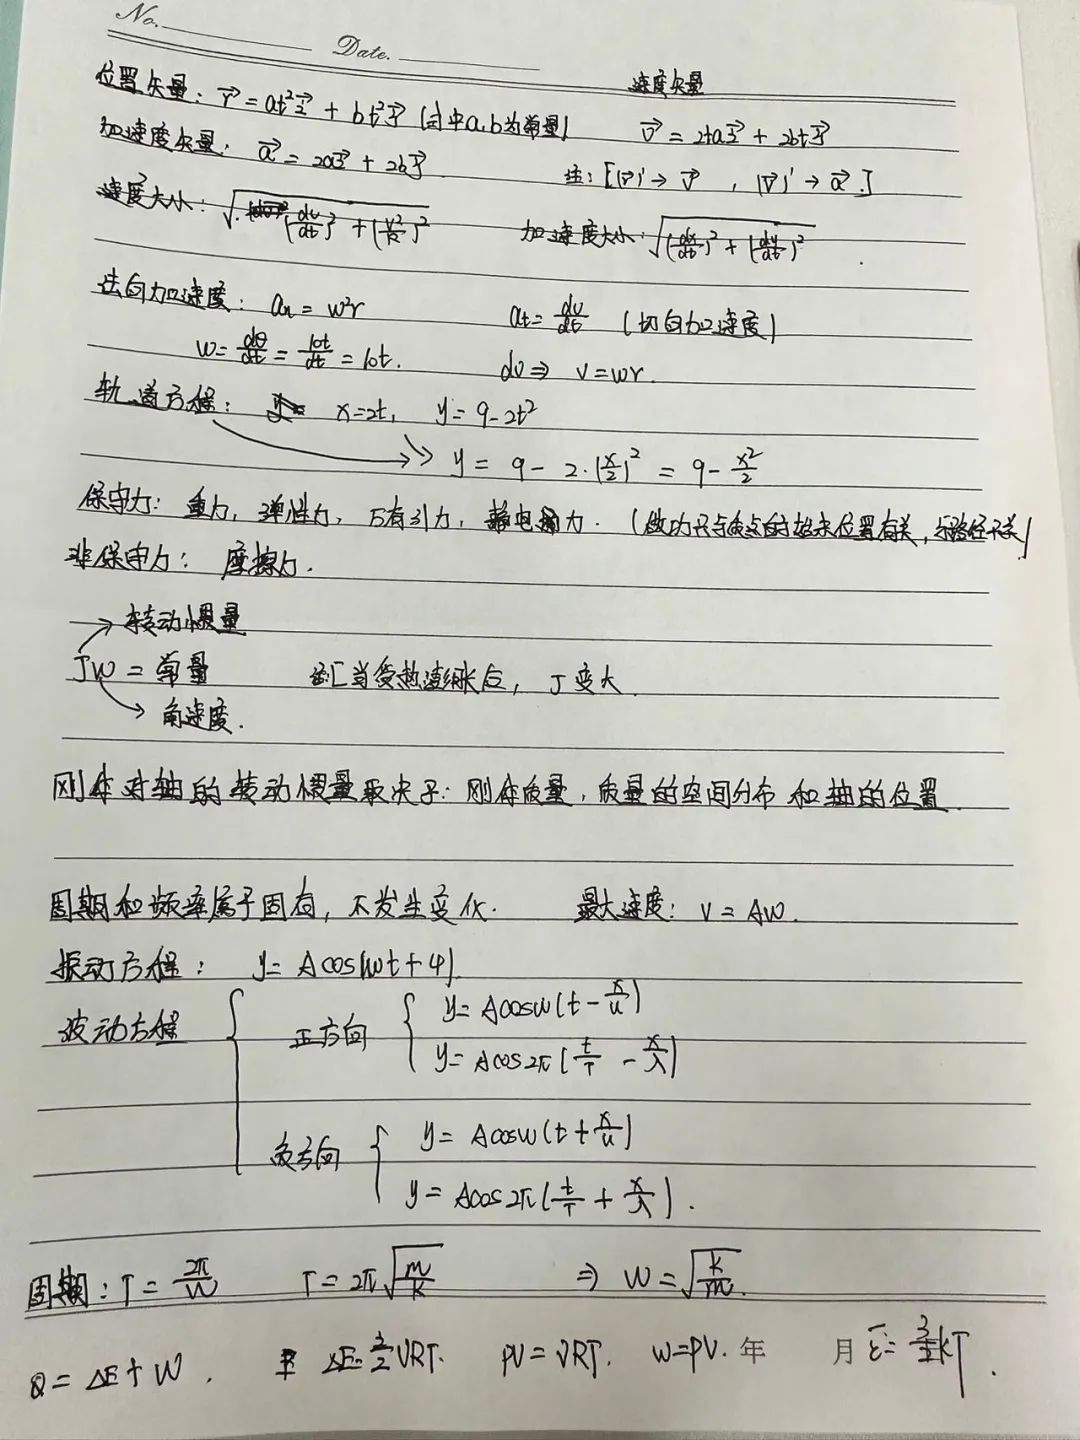 No.
Date.
速度矢量
位置矢量: r⃗ = at²i⃗ + bt²j⃗ (式中a,b为常量) v⃗ = 2tai⃗ + 2btj⃗
加速度矢量: a⃗ = 2ai⃗ + 2bj⃗ 注: [(r⃗)' → v⃗ , (v⃗)' → a⃗.]
速度大小: √(dv/dt)² + (v²/R)² 加速度大小: √(dx/dt)² + (dy/dt)²
法向加速度: an = w²r at = dv/dt (切向加速度)
w = dθ/dt = 10t/dt = 10t. dv ⇒ v = wr.
轨道方程: x=2t, y = 9-2t²
y = 9 - 2·(x/2)² = 9 - x²/2
保守力: 重力, 弹性力, 万有引力, 静电场力. (做功只与质点的始末位置有关, 与路径无关)
非保守力: 摩擦力.
→ 转动惯量
Jw = 常量 当受热膨胀后, J变大
→ 角速度.
刚体对轴的转动惯量取决于: 刚体质量, 质量的空间分布和轴的位置
周期和频率属于固有, 不发生变化. 最大速度: v = Aw.
振动方程: y = Acos(wt+φ)
波动方程 { 正方向 { y = Acosw(t - x/u)
y = Acos2π(t/T - x/λ)
负方向 { y = Acosw(t + x/u)
y = Acos2π(t/T + x/λ).
周期: T = 2π/w T = 2π√m/k ⇒ w = √k/m.
Q = ΔE + W. ΔE = 3/2 νRT. pV = νRT. w = pV. 年 月 ε̄ = 3/2 kT.